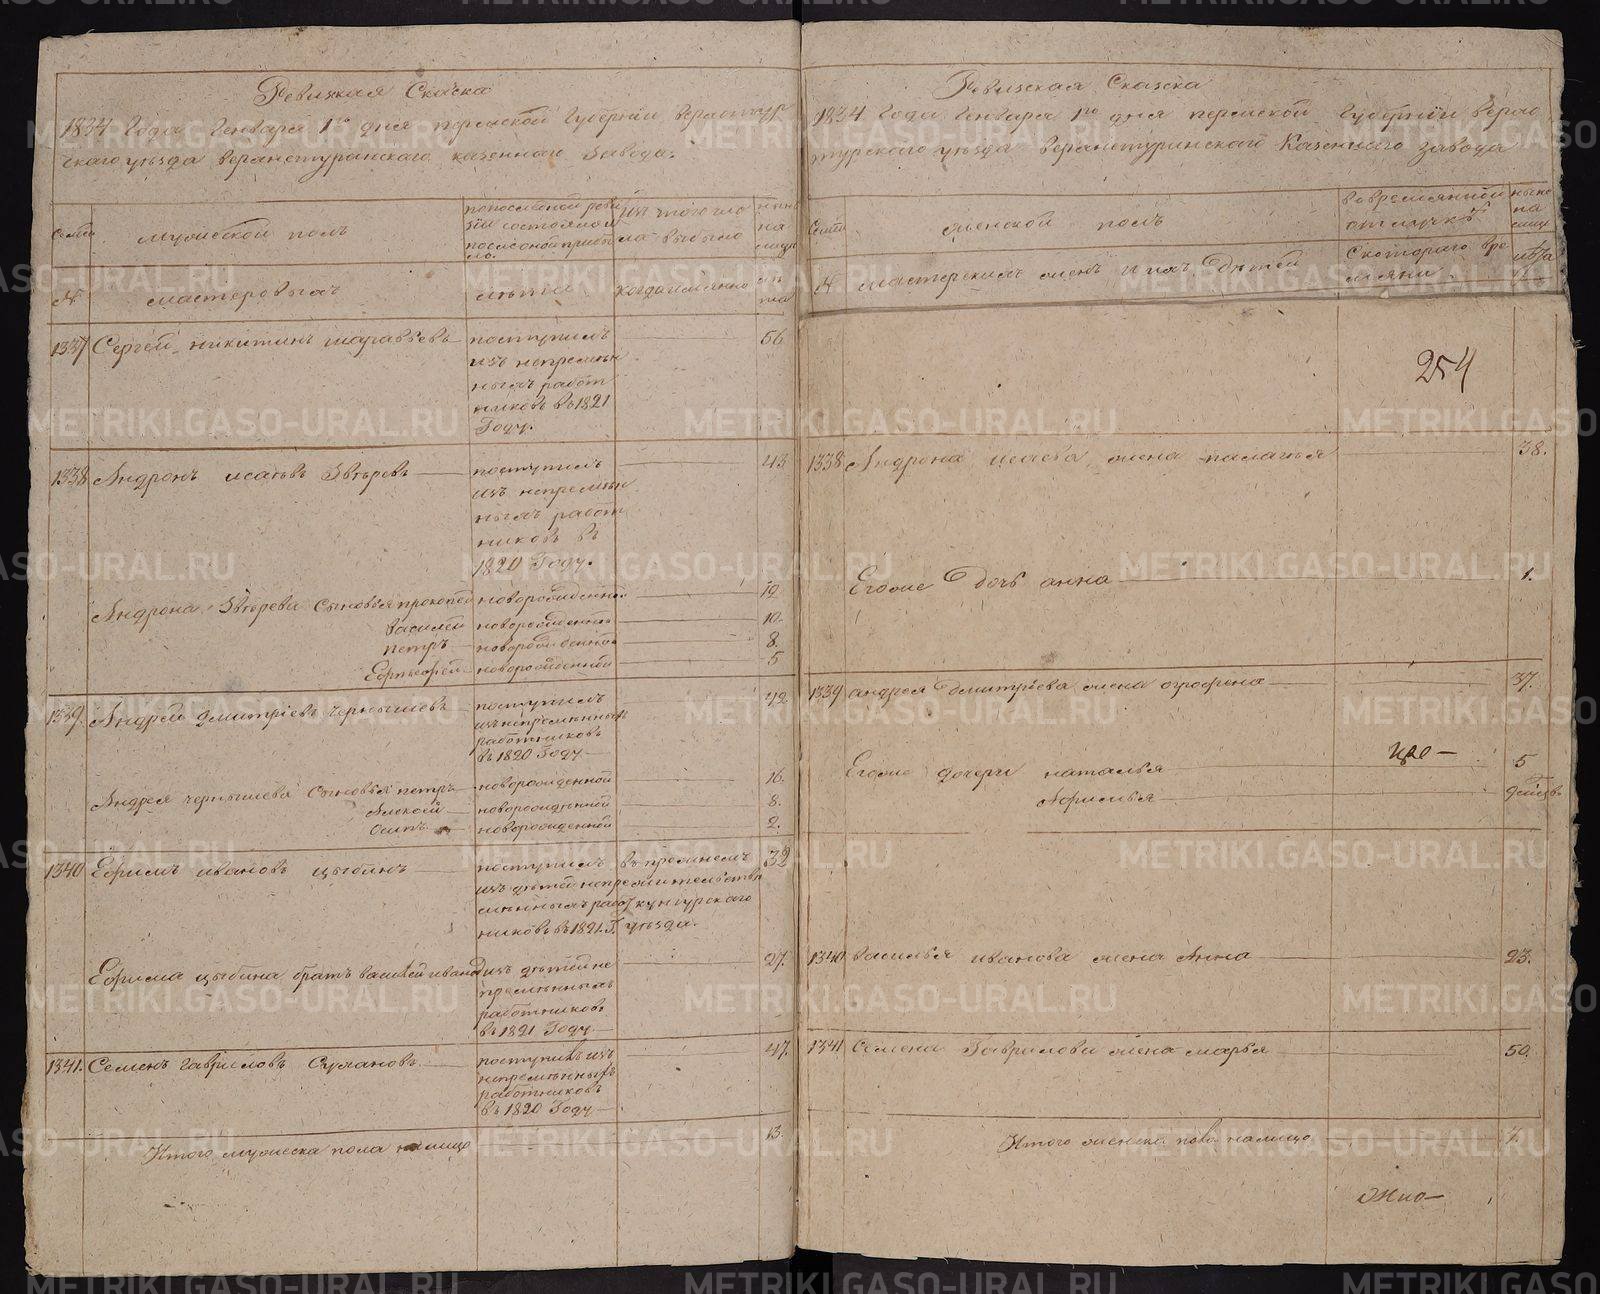 Ревизкая Скаска
1834 Года Генваря 1го дня пермской Губернии верхотур
скаго уезда верхнетуринскаго казеннаго Завода.
Семьи
мужеской полъ
попоследней реви
зіи состояло и
после оной прибы
ло.
изъ того чис
ла выбыло
ныне
на
лицо
№
мастеровыхъ
лета
когда имянно
ле
та
1337 Сергей никитинъ
поступилъ
56
изъ непремен
ныхъ работ
никовъ въ 1821
Году.
1338 Андронъ исаевъ Зверевъ
поступилъ
43
изъ непремен
ныхъ работ
никовъ въ
1820 Году.
Андрона Зверева Сыновья прокопей новорожденной 12
василей новорожденной 10.
петръ новорожденной 8.
новорожденной 5
1339. Андрей дмитріевъ чернышевъ
поступилъ
42
изъ непременныхъ
работниковъ
въ 1820 Году
Андрея чернышева Сыновья петръ новорожденной 16.
Алексей новорожденной 8.
осипъ новорожденной 2.
1340 Ефимъ ивановъ цыбинъ
поступилъ
въ прежнемъ
32
изъ детей непре
жительстве
менныхъ работ
кунгурскаго
никовъ въ 1821. Г.
уезда.
Ефима цыбина братъ василей иванов
изъ детей не
27.
пременныхъ
работниковъ
въ 1821 Году
1341. Семенъ гавриловъ
поступилъ изъ
47.
непременныхъ
работниковъ
въ 1820 Году
Итого мужеска пола налицо
13.
Ревизская Сказка
1834 Года Генваря 1го дня пермской Губерніи верхо
турскаго уезда верхнетуринскаго Казеннаго завода
Семьи
женской полъ
вовременной
отлучке
ныне
на
лице
№
мастерскихъ женъ и ихъ детей
Скотораго вре
мяни
лета
254
1338 Андрона исаева жена палагья 38.
Егоже дочь анна 1.
1339 андрея дмитріева жена огрофена 37.
Егоже дочери наталья 5
Афимья
1340 василья иванова жена Анна 23.
1341 Семена Гаврилова жена марья 50.
Итого женска пола налицо 7.
METRIKI.GASO-URAL.RU